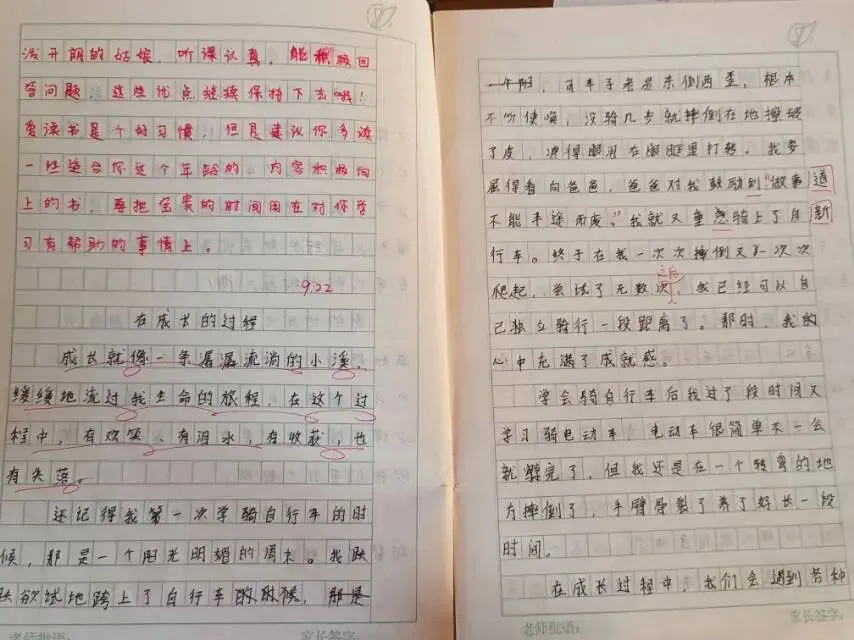 泼开朗的姑娘，听课认真，能积极回
答问题，这些优点继续保持下去哦！
爱读书是个好习惯，但是建议你多读
一些适合你这个年龄的、内容积极向
上的书，要把宝贵的时间用在对你学
习有帮助的事情上。
9.22
在成长的过程
成长就像一条潺潺流淌的小溪，
缓缓地流过我生命的旅程，在这个过
程中，有欢笑、有泪水，有收获，也
有失落。
还记得我第一次学骑自行车的时
候，那是一个阳光明媚的周末。我跃
跃欲试地跨上了自行车
老师批语：
家长签字：
可车子老是东倒西歪，根本
不听使唤，没骑几步就摔倒在地擦破
了皮，疼得眼泪在眼眶里打转。我委
屈得看向爸爸，爸爸对我鼓励到“做事 道
不能半途而废。”我就又重意骑上了自 新
行车。终于在我一次次摔倒又一次次
爬起，尝试了无数次之后，我已经可以自
己独立骑行一段距离了。那时，我的
心中充满了成就感。
学会骑自行车后我过了段时间又
学习骑电动车，电动车很简单不一会
就学完了，但我还是在一个转弯的地
方摔倒了，手臂骨裂了养了好长一段
时间。
在成长过程中，我们会遇到各种
老师批语：
家长签字：